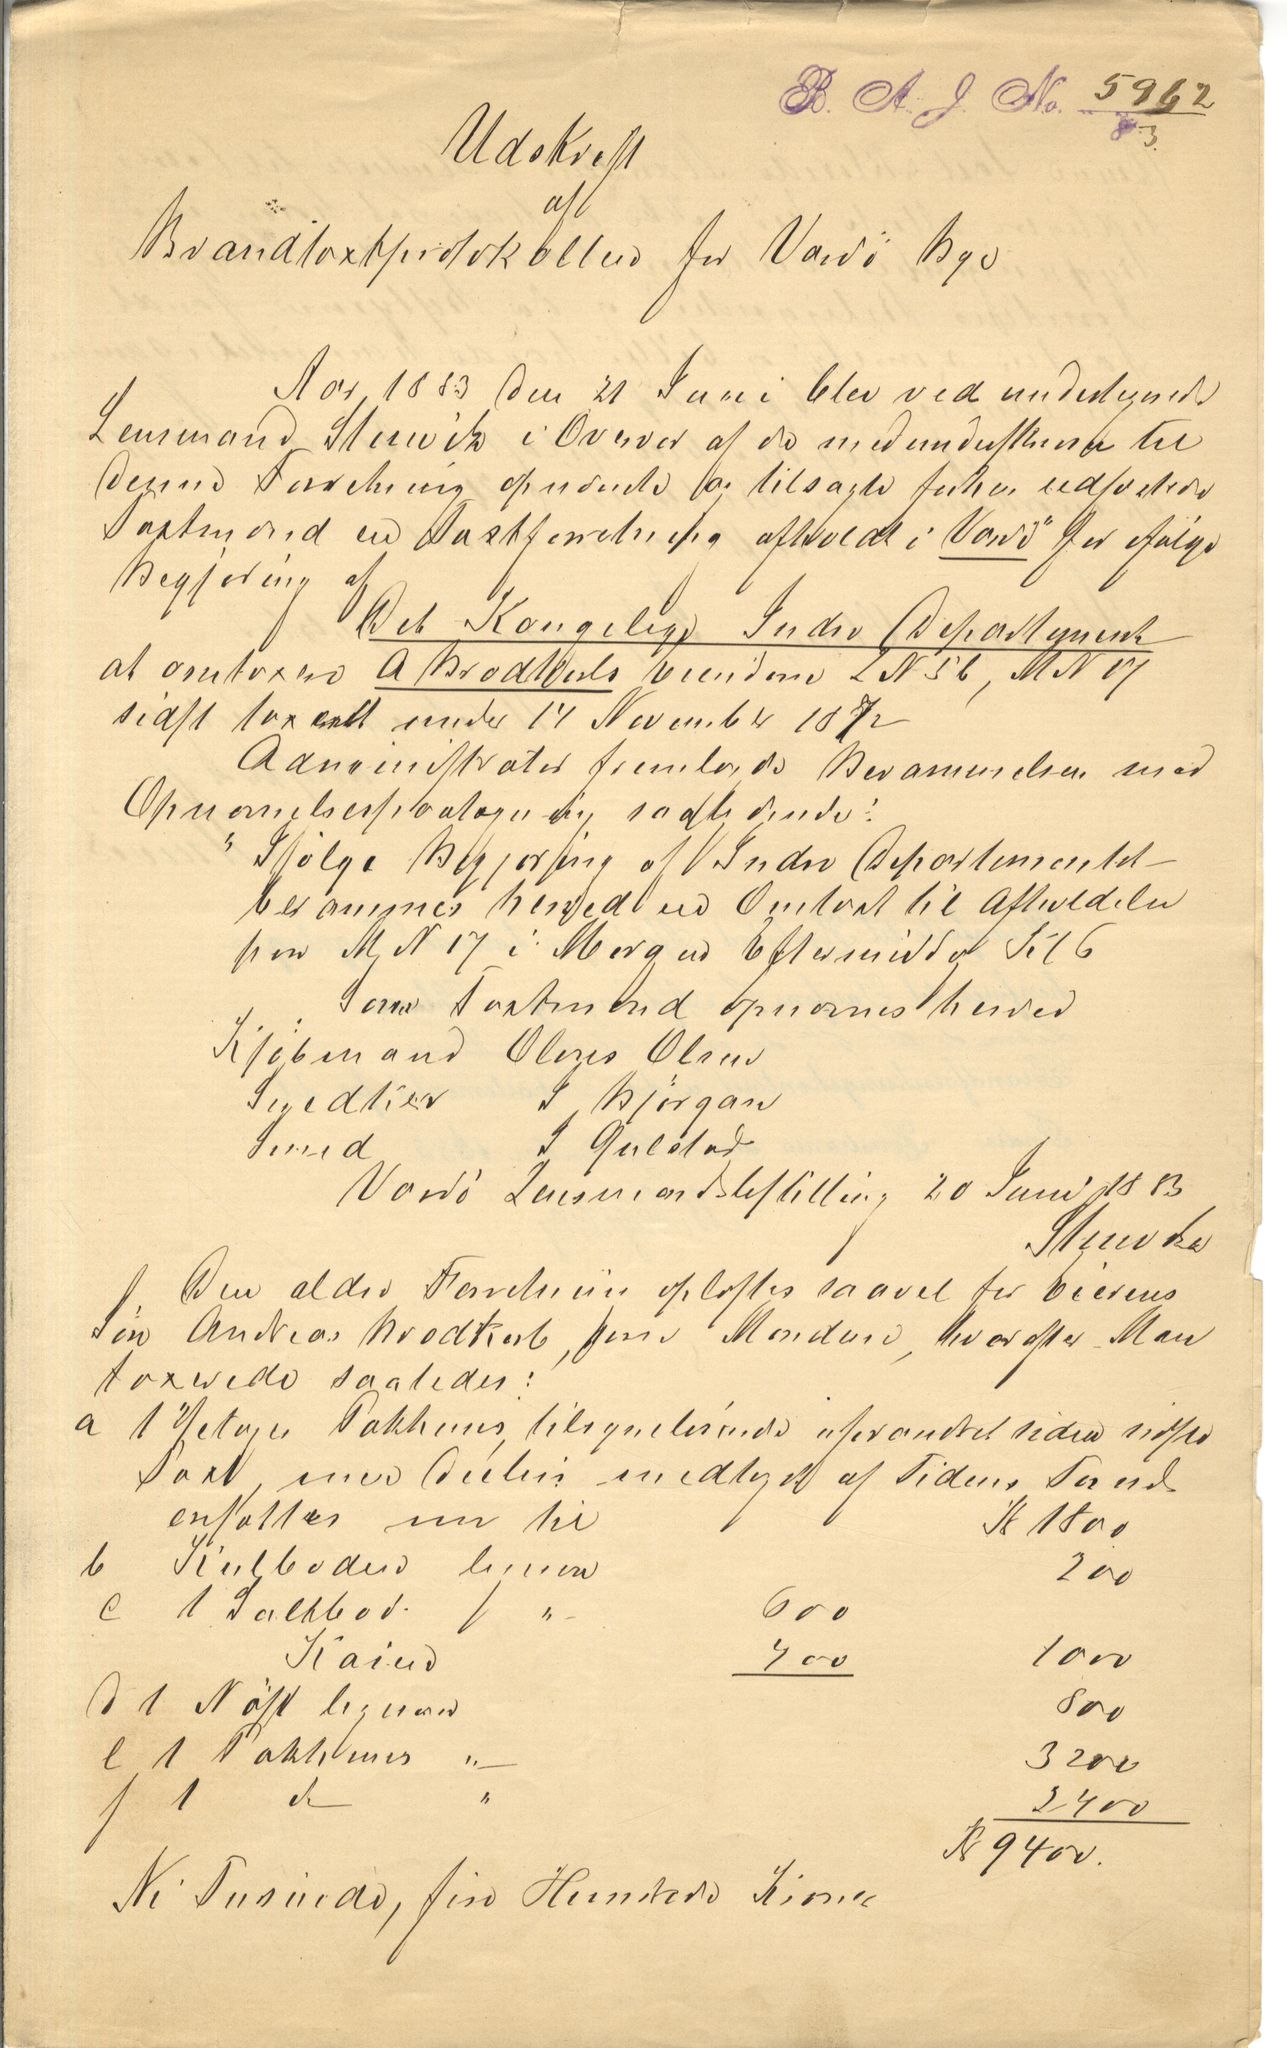 B. A. J. No. 5962
83.
Udskrift
af
Brandtaxtprotokollen for Vardö By
Aar 1883 den 21 Juni blev ved undertegnede
Lensmand Stenvik i Overvær af de medunderskrevne til
denne Forretning opnævnte og tilsagte forhen edfæstede
Taxtmænd en Taxtforretning afholdt i Vardö for efølge
Begjæring af
Det Kongelige Indre Departement
at omtaxere A Brodtkorbs Eiendom L N 56, M N 17
sidst taxeret under 14 November 1872
Administrator fremlagde Berammelsen med
Opnævnelsespaategning saalydende:
" Ifölge Begjæring af Indre Departementet
berammes herved en Omtaxt til Afholdelse
paa M N 17 i Morgen Eftermiddag Kl 6
Som Taxtmænd opnævnes herved
Kjöbmand Olaus Olsen
Snedker J Björgan
Smed J Gulstad
Vardö Lensmandsbestilling 20 Juni 1883
Stenvik
Den ældre Forretning oplæstes saavel for Eierens
Sön Andreas Brodtkorb, som Mændene, hvorefter Man
taxerede saaledes:
a 1 Etages Pakhuus, tilsyneladende uforandret siden sidste
Taxt, men Deelvis medtaget af Tidens Tand
ansattes nu til K 1800
b Kulboden ligesaa 200
c 1 Saltbod " 600
Kaien 400 1000
d 1 Nöst ligesaa 800
e 1 Pakhuus " 3200
f 1 do " 2400
K 9400.
Ni Tusinde, fire Hundrede Kroner